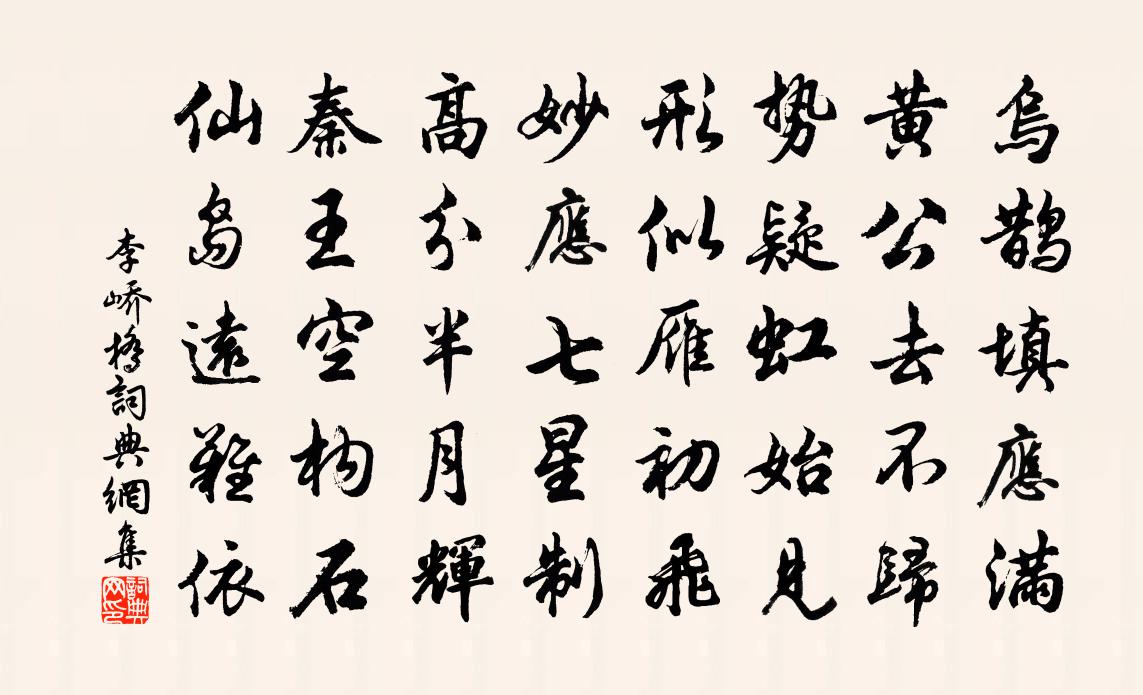 烏鵲填應滿
黄公去不歸
勢疑虹始見
形似雁初飛
妙應七星制
高分半月輝
秦王空构石
仙島遠難依
李嶠橋詞典網集
詞典网印